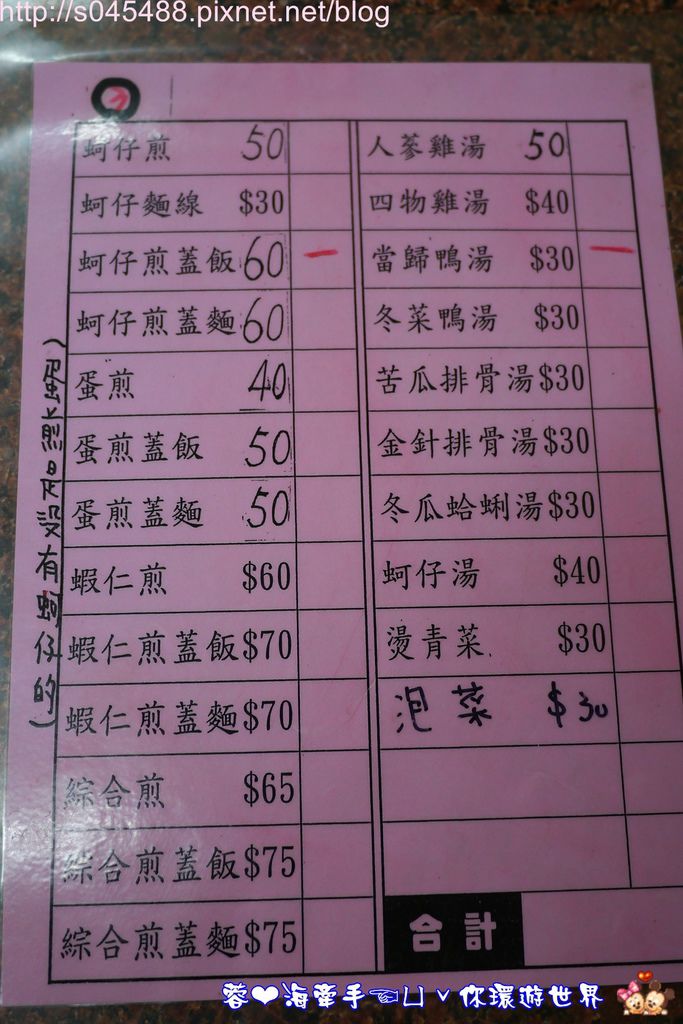 http://s045488.pixnet.net/blog
蚵仔煎 50
蚵仔麵線 $30
蚵仔煎蓋飯 60
蚵仔煎蓋麵 60
蛋煎 40
蛋煎蓋飯 50
蛋煎蓋麵 50
蝦仁煎 $60
蝦仁煎蓋飯 $70
蝦仁煎蓋麵 $70
綜合煎 $65
綜合煎蓋飯 $75
綜合煎蓋麵 $75
(蛋煎是沒有蚵仔的)
人蔘雞湯 50
四物雞湯 $40
當歸鴨湯 $30
冬菜鴨湯 $30
苦瓜排骨湯 $30
金針排骨湯 $30
冬瓜蛤蜊湯 $30
蚵仔湯 $40
燙青菜 $30
泡菜 $30
合計
蓉❤海牽手☜ㄩˇ你環遊世界